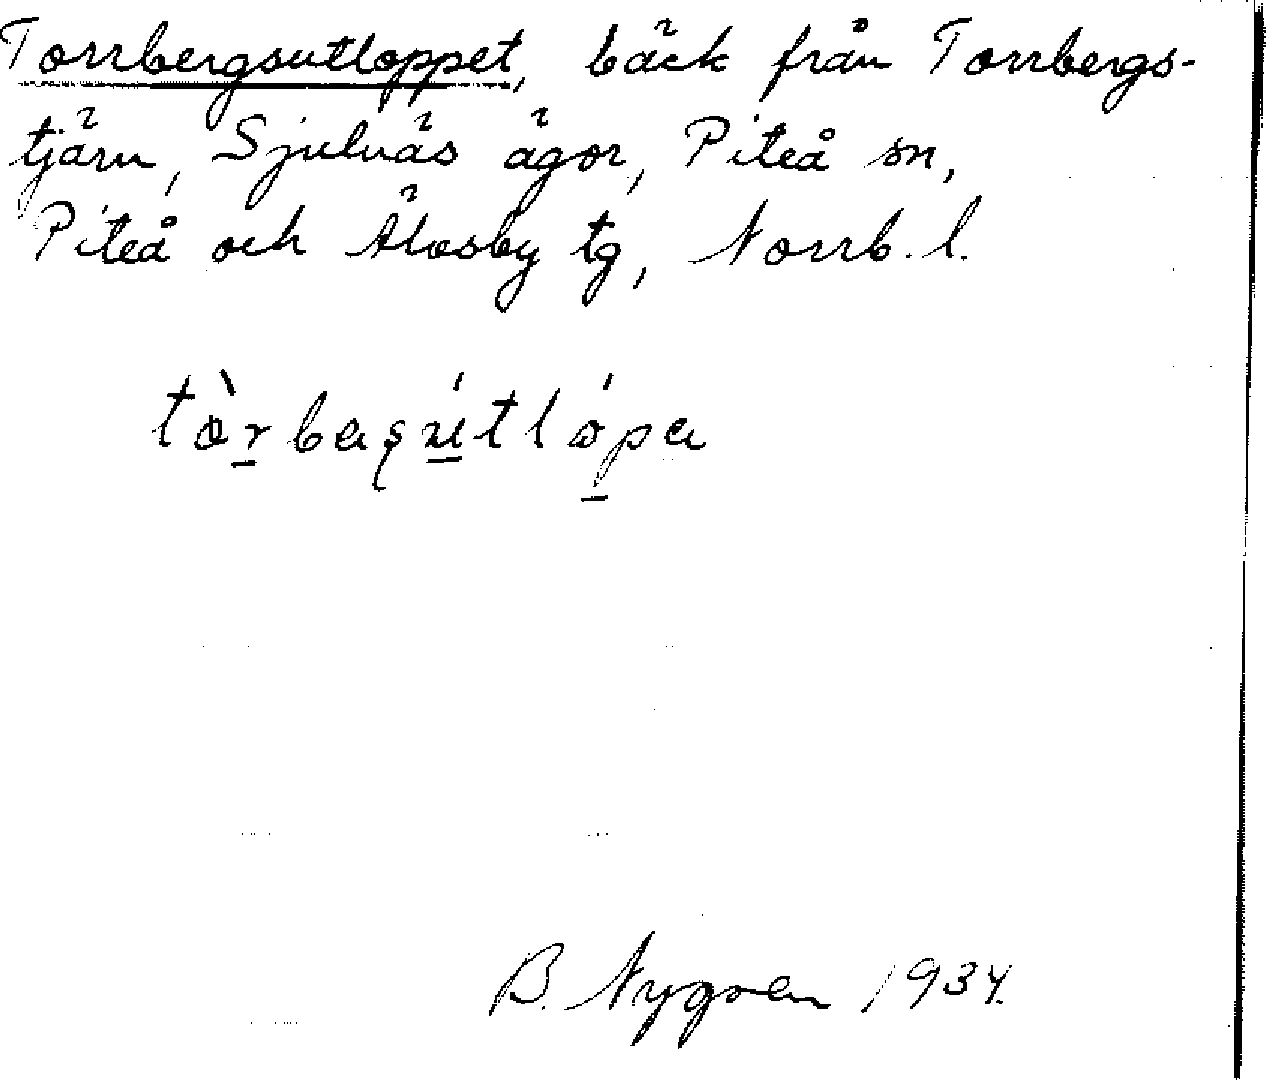 Torrbergsutloppet, bäck från Torrbergs-
tjärn, Sjulnäs ägor, Piteå sn,
Piteå och Älvsby tg, Norrb. l.
B. Nygren 1934.